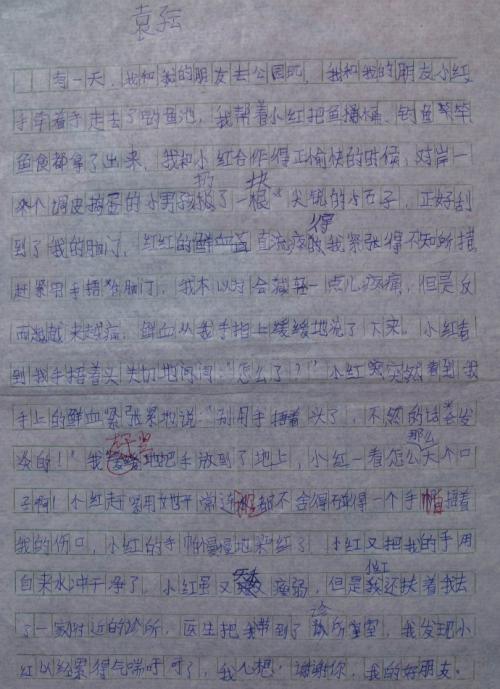 袁坛
有一天,我和我的朋友去公园玩,我和我的朋友小红
手牵着手走去了钓鱼池,我帮着小红把鱼桶、钓鱼竿
鱼食都拿了出来,我和小红合作得正愉快的时候,对岸一
来个调皮捣蛋的小男孩扔了一块尖锐的小石子,正好刮
到了我的脑门,红红的鲜血直流疼得我紧张得不知所措
赶紧用手捂住脑门,我本以为会减轻一点儿疼痛,但是反
而越越来越痛,鲜血从我手指上缓缓地流了下来,小红看
到我手捂着头关切地问问:“怎么了?”小红突然看到我
手上的鲜血紧张地说:“别用手捂着头了,不然的话会发
炎的!”我地把手放到了地上,小红一看怎么那么大个口
子啊!小红赶紧用她平常连都不舍得碰得一个手帕捂着
我的伤口,小红的手帕慢慢地染红了,小红又把我的手用
自来水冲干净了,小红虽又矮又瘦弱,但是小红还扶着我去
了一家附近的诊所,医生把我带到了诊所室,我发现小
红以经累得气喘吁吁了,我心想:谢谢你,我的好朋友。